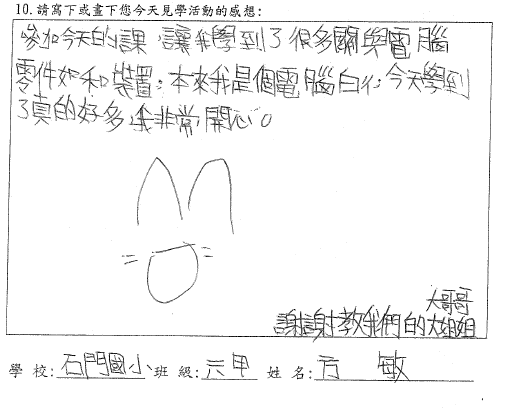 10.請寫下或畫下您今天見學活動的感想:
參加今天的課 讓我學到了很多關與電腦
零件如和裝置;本來我是個電腦白
今天學到
了真的好多,我非常開心。
大哥哥
謝謝教我們的大姐姐
學 校:石門國小班 級:六甲 姓 名:方 敏